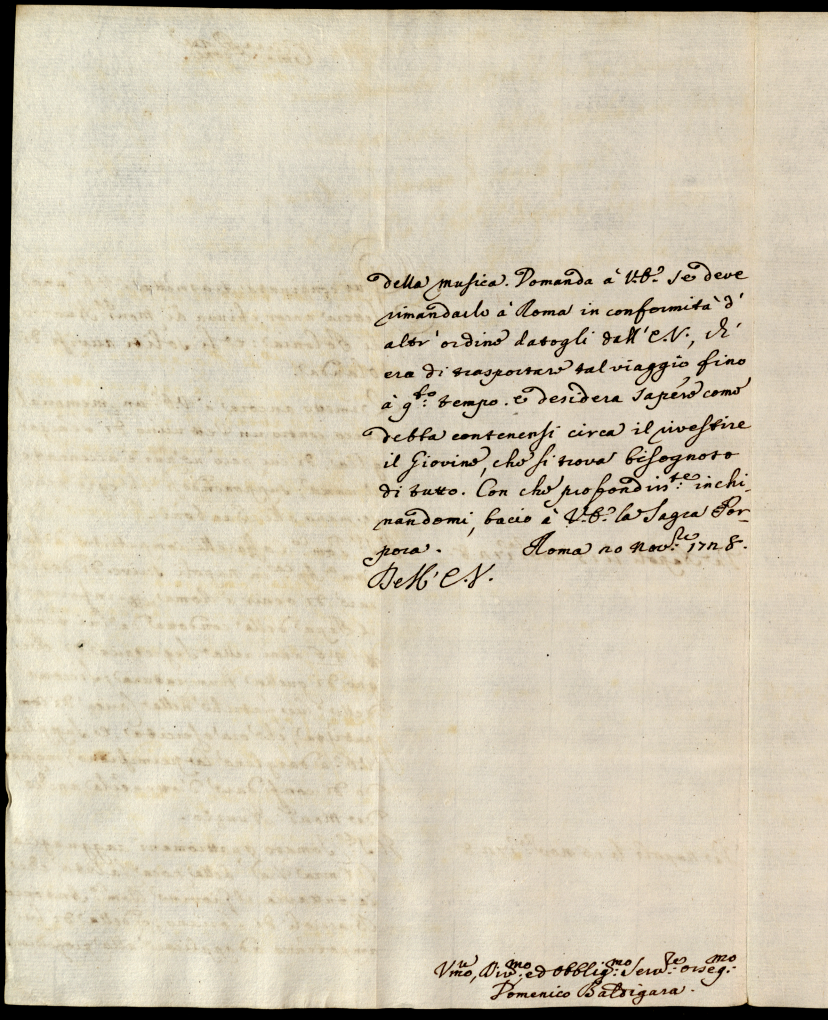 della musica. Domanda à V.E. se deve
rimandarlo à Roma in conformità d'
altr'ordine datogli dall'E.V., ch'
era di trasportare tal viaggio fino
à q.to tempo. e desidera sapere come
debba contenersi circa il rivestire
il Giovine, che si trova bisognoto
di tutto. Con che profondis.te inchi-
nandomi, bacio à V.E. la Sagra Por-
pora. Roma 20 Nov.bre 1728.
Dell'E.V.
Um.o, Div.mo ed Obblig.mo Serv.re osseq.mo
Domenico Baldigara.